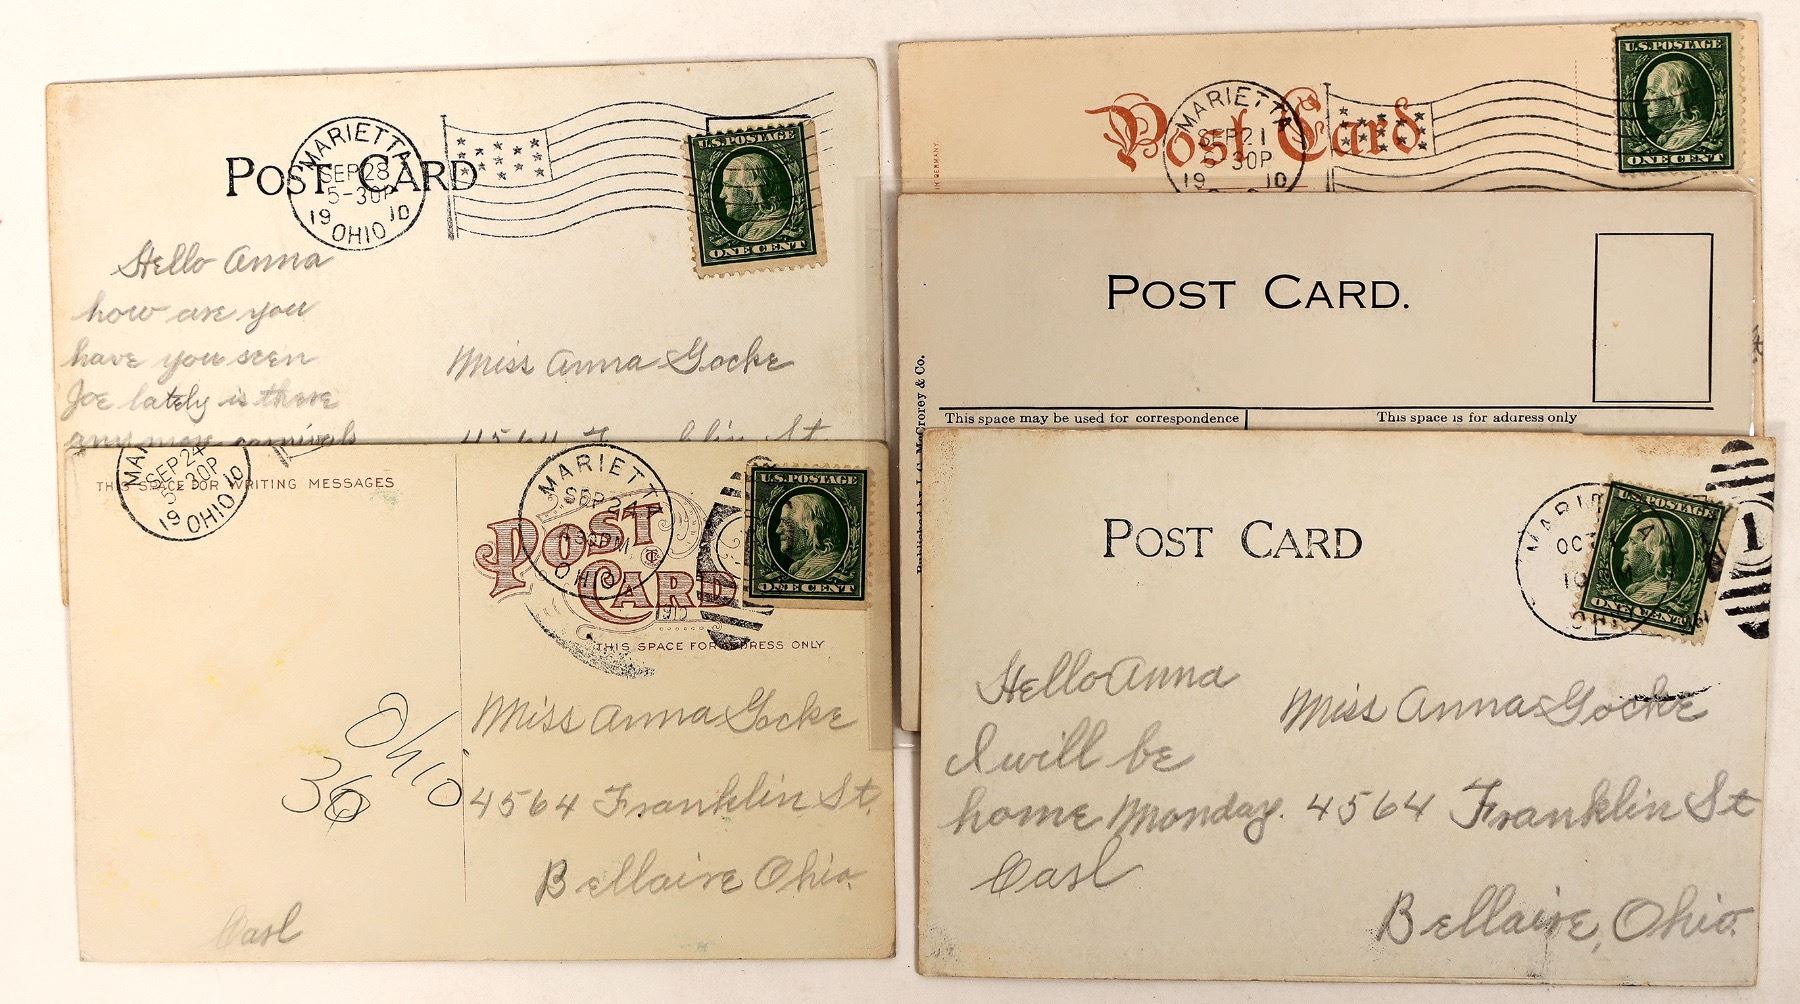 POST CARD
MARIETTA
SEP 28
5-30P
19 10
OHIO
U.S. POSTAGE
ONE CENT
Hello Anna
how are you
have you seen
Joe lately is there
any more carnivals
Miss Anna Gocke
4564 Franklin St
Post Card
MARIETTA
SEP 21
30P
19 10
U.S. POSTAGE
ONE CENT
IN GERMANY.
POST CARD.
This space may be used for correspondence
This space is for address only
Published by J. G. McCrorey & Co.
SEP 24
5-30P
19 10
OHIO
THIS SPACE FOR WRITING MESSAGES
POST CARD
MARIETTA
SEP 24
OHIO
1910
U.S. POSTAGE
ONE CENT
THIS SPACE FOR ADDRESS ONLY
Ohio
36
Miss Anna Gocke
4564 Franklin St.
Bellaire Ohio.
Carl
POST CARD
OCT
U.S. POSTAGE
ONE CENT
1
Hello Anna
I will be
home Monday.
Carl
Miss Anna Gocke
4564 Franklin St
Bellaire, Ohio.